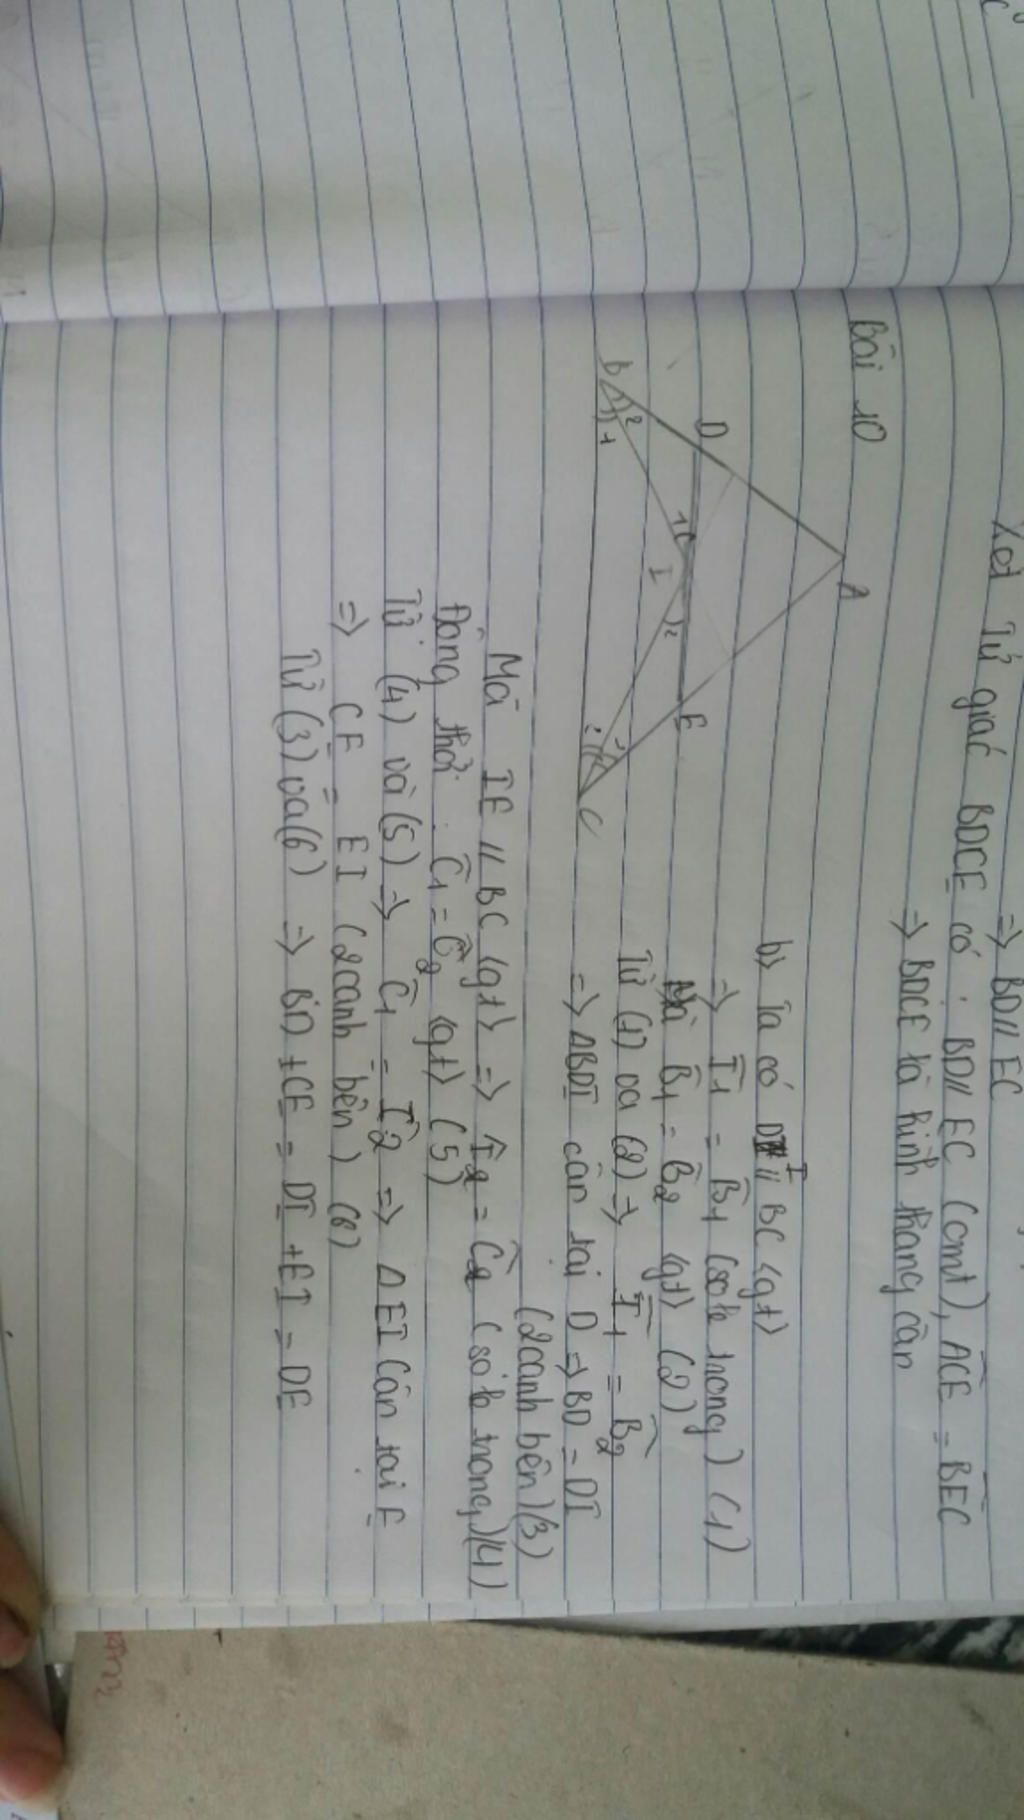 => BD // EC
Xét Tứ giác BDCE có : BD // EC (cmt), ACE = BEC
=> BDCE là hình thang cân
Bài 10
A
D
E
I
1
2
B
2
1
C
b) Ta có DI // BC (gt)
=> I1 = B1 (so le trong) (1)
Mà B1 = B2 (gt) (2)
Từ (1) va (2) => I1 = B2
=> ΔBDI cân tai D => BD = DI
(2 canh bên) (3)
Mà IE // BC (gt) => I2 = C2 (so le trong) (4)
Đồng thời : C1 = C2 (gt) (5)
Từ (4) và (5) => C1 = I2 => Δ EI Cân tai E
=> CE = EI (2 canh bên) (6)
Từ (3) va (6) => BD + CE = DI + EI = DE